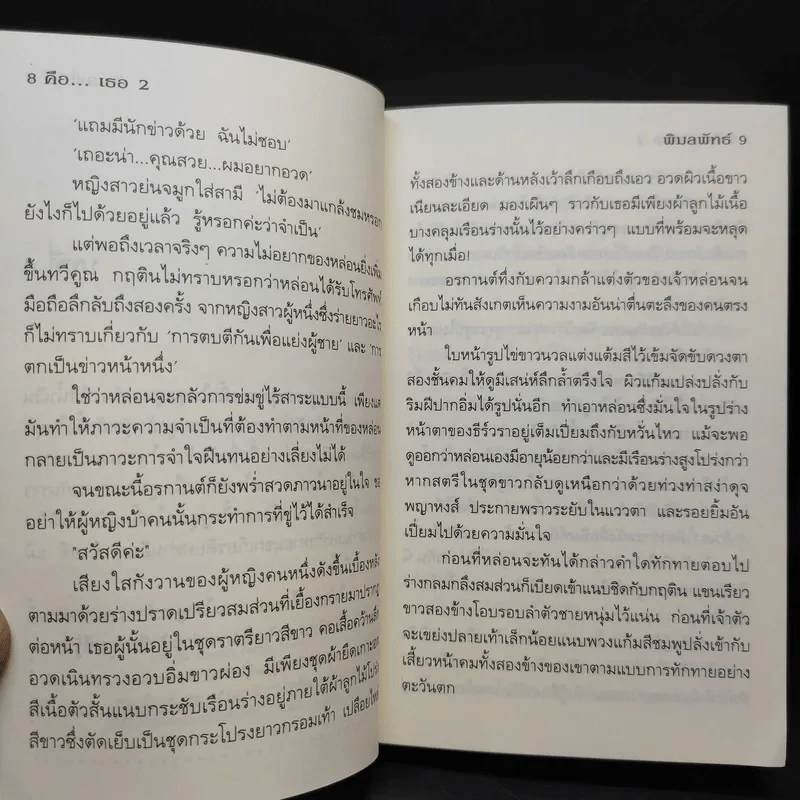 8 คือ... เธอ 2
'แถมมีนักข่าวด้วย ฉันไม่ชอบ'
'เถอะน่า...คุณสวย...ผมอยากอวด'
หญิงสาวย่นจมูกใส่สามี 'ไม่ต้องมาแกล้งชมหรอก
ยังไงก็ไปด้วยอยู่แล้ว รู้หรอกค่ะว่าจำเป็น'
แต่พอถึงเวลาจริงๆ ความไม่อยากของหล่อนยิ่งเพิ่ม
ขึ้นทวีคูณ กฤตินไม่ทราบหรอกว่าหล่อนได้รับโทรศัพท์
มือถือลึกลับถึงสองครั้ง จากหญิงสาวผู้หนึ่งซึ่งร่ายยาวอะไร
ก็ไม่ทราบเกี่ยวกับ 'การตบตีกันเพื่อแย่งผู้ชาย' และ 'การ
ตกเป็นข่าวหน้าหนึ่ง'
ใช่ว่าหล่อนจะกลัวการข่มขู่ไร้สาระแบบนี้ เพียงแต่
มันทำให้ภาวะความจำเป็นที่ต้องทำตามหน้าที่ของหล่อน
กลายเป็นภาวะการจำใจฝืนทนอย่างเลี่ยงไม่ได้
จนขณะนี้อรกานต์ก็ยังพร่ำสวดภาวนาอยู่ในใจ ขอ
อย่าให้ผู้หญิงบ้าคนนั้นกระทำการที่ขู่ไว้ได้สำเร็จ
"สวัสดีค่ะ"
เสียงใสกังวานของผู้หญิงคนหนึ่งดังขึ้นเบื้องหลัง
ตามมาด้วยร่างปราดเปรียวสมส่วนที่เยื้องกรายมาปรากฏ
ต่อหน้า เธอผู้นั้นอยู่ในชุดราตรียาวสีขาว คอเสื้อคว้านลึก
อวดเนินทรวงอวบอิ่มขาวผ่อง มีเพียงชุดผ้ายืดเกาะอก
สีเนื้อตัวสั้นแนบกระชับเรือนร่างอยู่ภายใต้ผ้าลูกไม้โปร่ง
สีขาวซึ่งตัดเย็บเป็นชุดกระโปรงยาวกรอมเท้า เปลือยไหล่
พิมลพัทธ์ 9
ทั้งสองข้างและด้านหลังเว้าลึกเกือบถึงเอว อวดผิวเนื้อขาว
เนียนละเอียด มองเผินๆ ราวกับเธอมีเพียงผ้าลูกไม้เนื้อ
บางคลุมเรือนร่างนั้นไว้อย่างคร่าวๆ แบบที่พร้อมจะหลุด
ได้ทุกเมื่อ!
อรกานต์ทึ่งกับความกล้าแต่งตัวของเจ้าหล่อนจน
เกือบไม่ทันสังเกตเห็นความงามอันน่าตื่นตะลึงของคนตรง
หน้า
ใบหน้ารูปไข่ขาวนวลแต่งแต้มสีไว้เข้มจัดขับดวงตา
สองชั้นคมให้ดูมีเสน่ห์ลึกล้ำตรึงใจ ผิวแก้มเปล่งปลั่งกับ
ริมฝีปากอิ่มได้รูปนั่นอีก ทำเอาหล่อนซึ่งมั่นใจในรูปร่าง
หน้าตาของธีร์วราอยู่เต็มเปี่ยมถึงกับหวั่นไหว แม้จะพอ
ดูออกว่าหล่อนเองมีอายุน้อยกว่าและมีเรือนร่างสูงโปร่งกว่า
หากสตรีในชุดขาวกลับดูเหนือกว่าด้วยท่วงท่าสง่าดุจ
พญาหงส์ ประกายพราวระยับในแววตา และรอยยิ้มอัน
เปี่ยมไปด้วยความมั่นใจ
ก่อนที่หล่อนจะทันได้กล่าวคำใดทักทายตอบไป
ร่างกลมกลึงสมส่วนก็เบียดเข้าแนบชิดกับกฤติน แขนเรียว
ขาวสองข้างโอบรอบลำตัวชายหนุ่มไว้แน่น ก่อนที่เจ้าตัว
จะเขย่งปลายเท้าเล็กน้อยแนบพวงแก้มสีชมพูปลั่งเข้ากับ
เสี้ยวหน้าคมทั้งสองข้างของเขาตามแบบการทักทายอย่าง
ตะวันตก